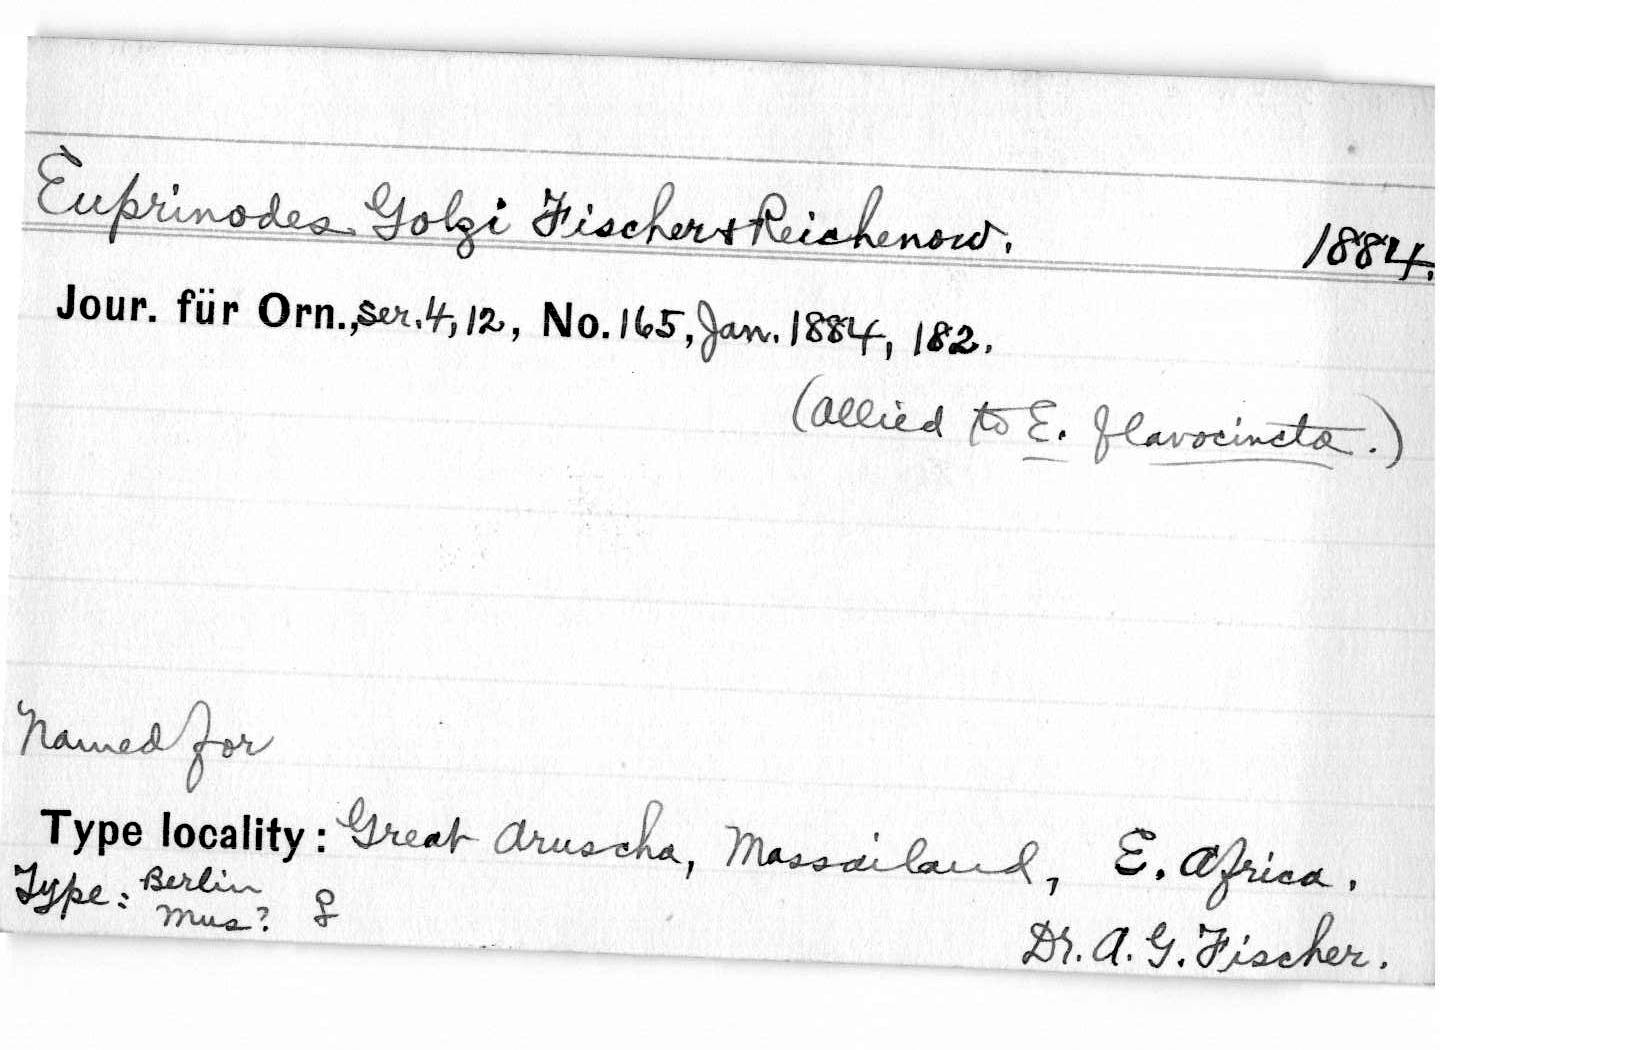 Euprinodes Golzi Fischer & Reichenow. 1884.
Jour. für Orn., ser. 4, 12, No. 165, Jan. 1884, 182.
(Allied to E. flavocincta.)
Named for
Type locality: Great Aruscha, Massailand, E. Africa.
Type: Berlin Mus? ♀
Dr. A. G. Fischer.